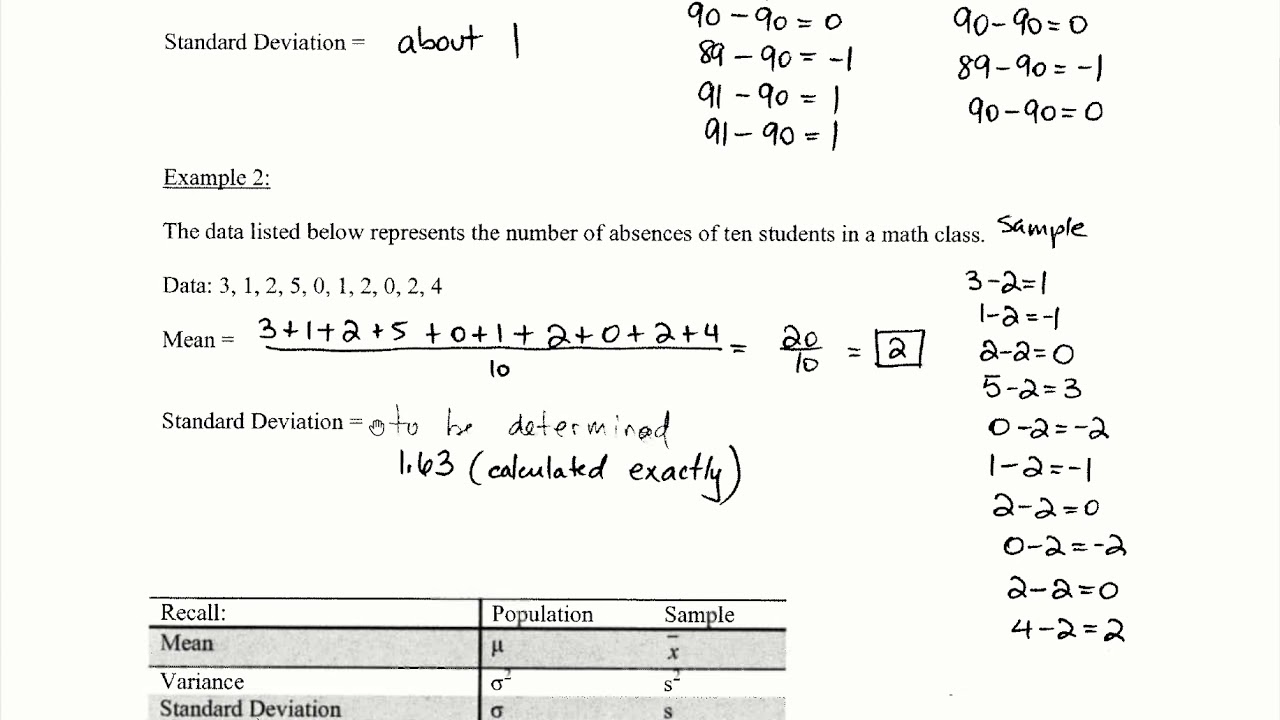 90 - 90 = 0
90 - 90 = 0
Standard Deviation = about 1
89 - 90 = -1
89 - 90 = -1
91 - 90 = 1
90 - 90 = 0
91 - 90 = 1
Example 2:
The data listed below represents the number of absences of ten students in a math class. Sample
Data: 3, 1, 2, 5, 0, 1, 2, 0, 2, 4
3 - 2 = 1
1 - 2 = -1
2 - 2 = 0
5 - 2 = 3
0 - 2 = -2
1 - 2 = -1
2 - 2 = 0
0 - 2 = -2
2 - 2 = 0
4 - 2 = 2
Mean = 3 + 1 + 2 + 5 + 0 + 1 + 2 + 0 + 2 + 4 / 10 = 20 / 10 = 2
Standard Deviation = to be determined
1.63 (calculated exactly)
Recall: Population Sample
Mean μ x̄
Variance σ² s²
Standard Deviation σ s